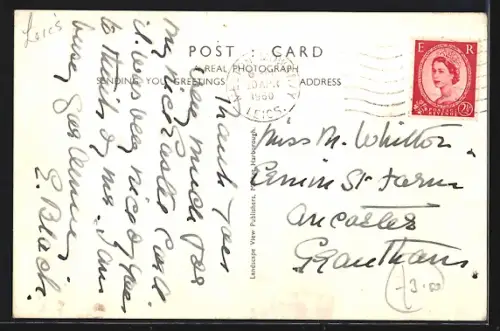 Leics
POST : CARD
A REAL PHOTOGRAPH
SENDING YOU GREETINGS
ADDRESS
1960
LEICS
E R
2½D
Thank you
very much for
my Easter Card.
it was very nice of you
to think of me. I am
busy gardening
E. Black.
Landscape View Publishers, Market Harborough.
Miss M. Whitton
Ermin St Farm
Ancaster
Grantham.
-3.00